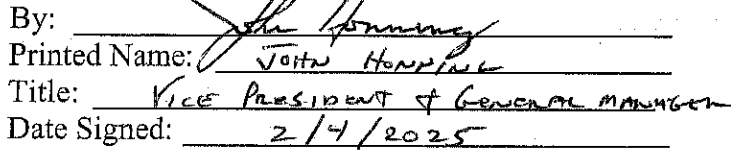 By: John Honning
Printed Name: JOHN HONNING
Title: VICE PRESIDENT & GENERAL MANAGER
Date Signed: 2/4/2025